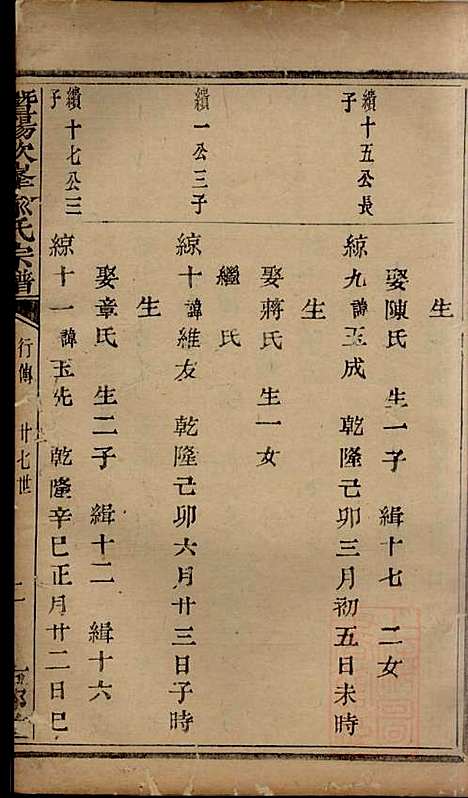 生
娶陳氏 生一子 緝十七 二女
績十五公長子
綜九諱玉成 乾隆己卯三月初五日未時
生
娶蔣氏 生一女
繼 氏
績一公三子
綜十諱維友 乾隆己卯六月廿三日子時
生
娶章氏 生二子 緝十二 緝十六
績十七公三子
綜十一諱玉先 乾隆辛巳正月廿二日巳
暨陽次峯俞氏宗譜
行傳 廿七世